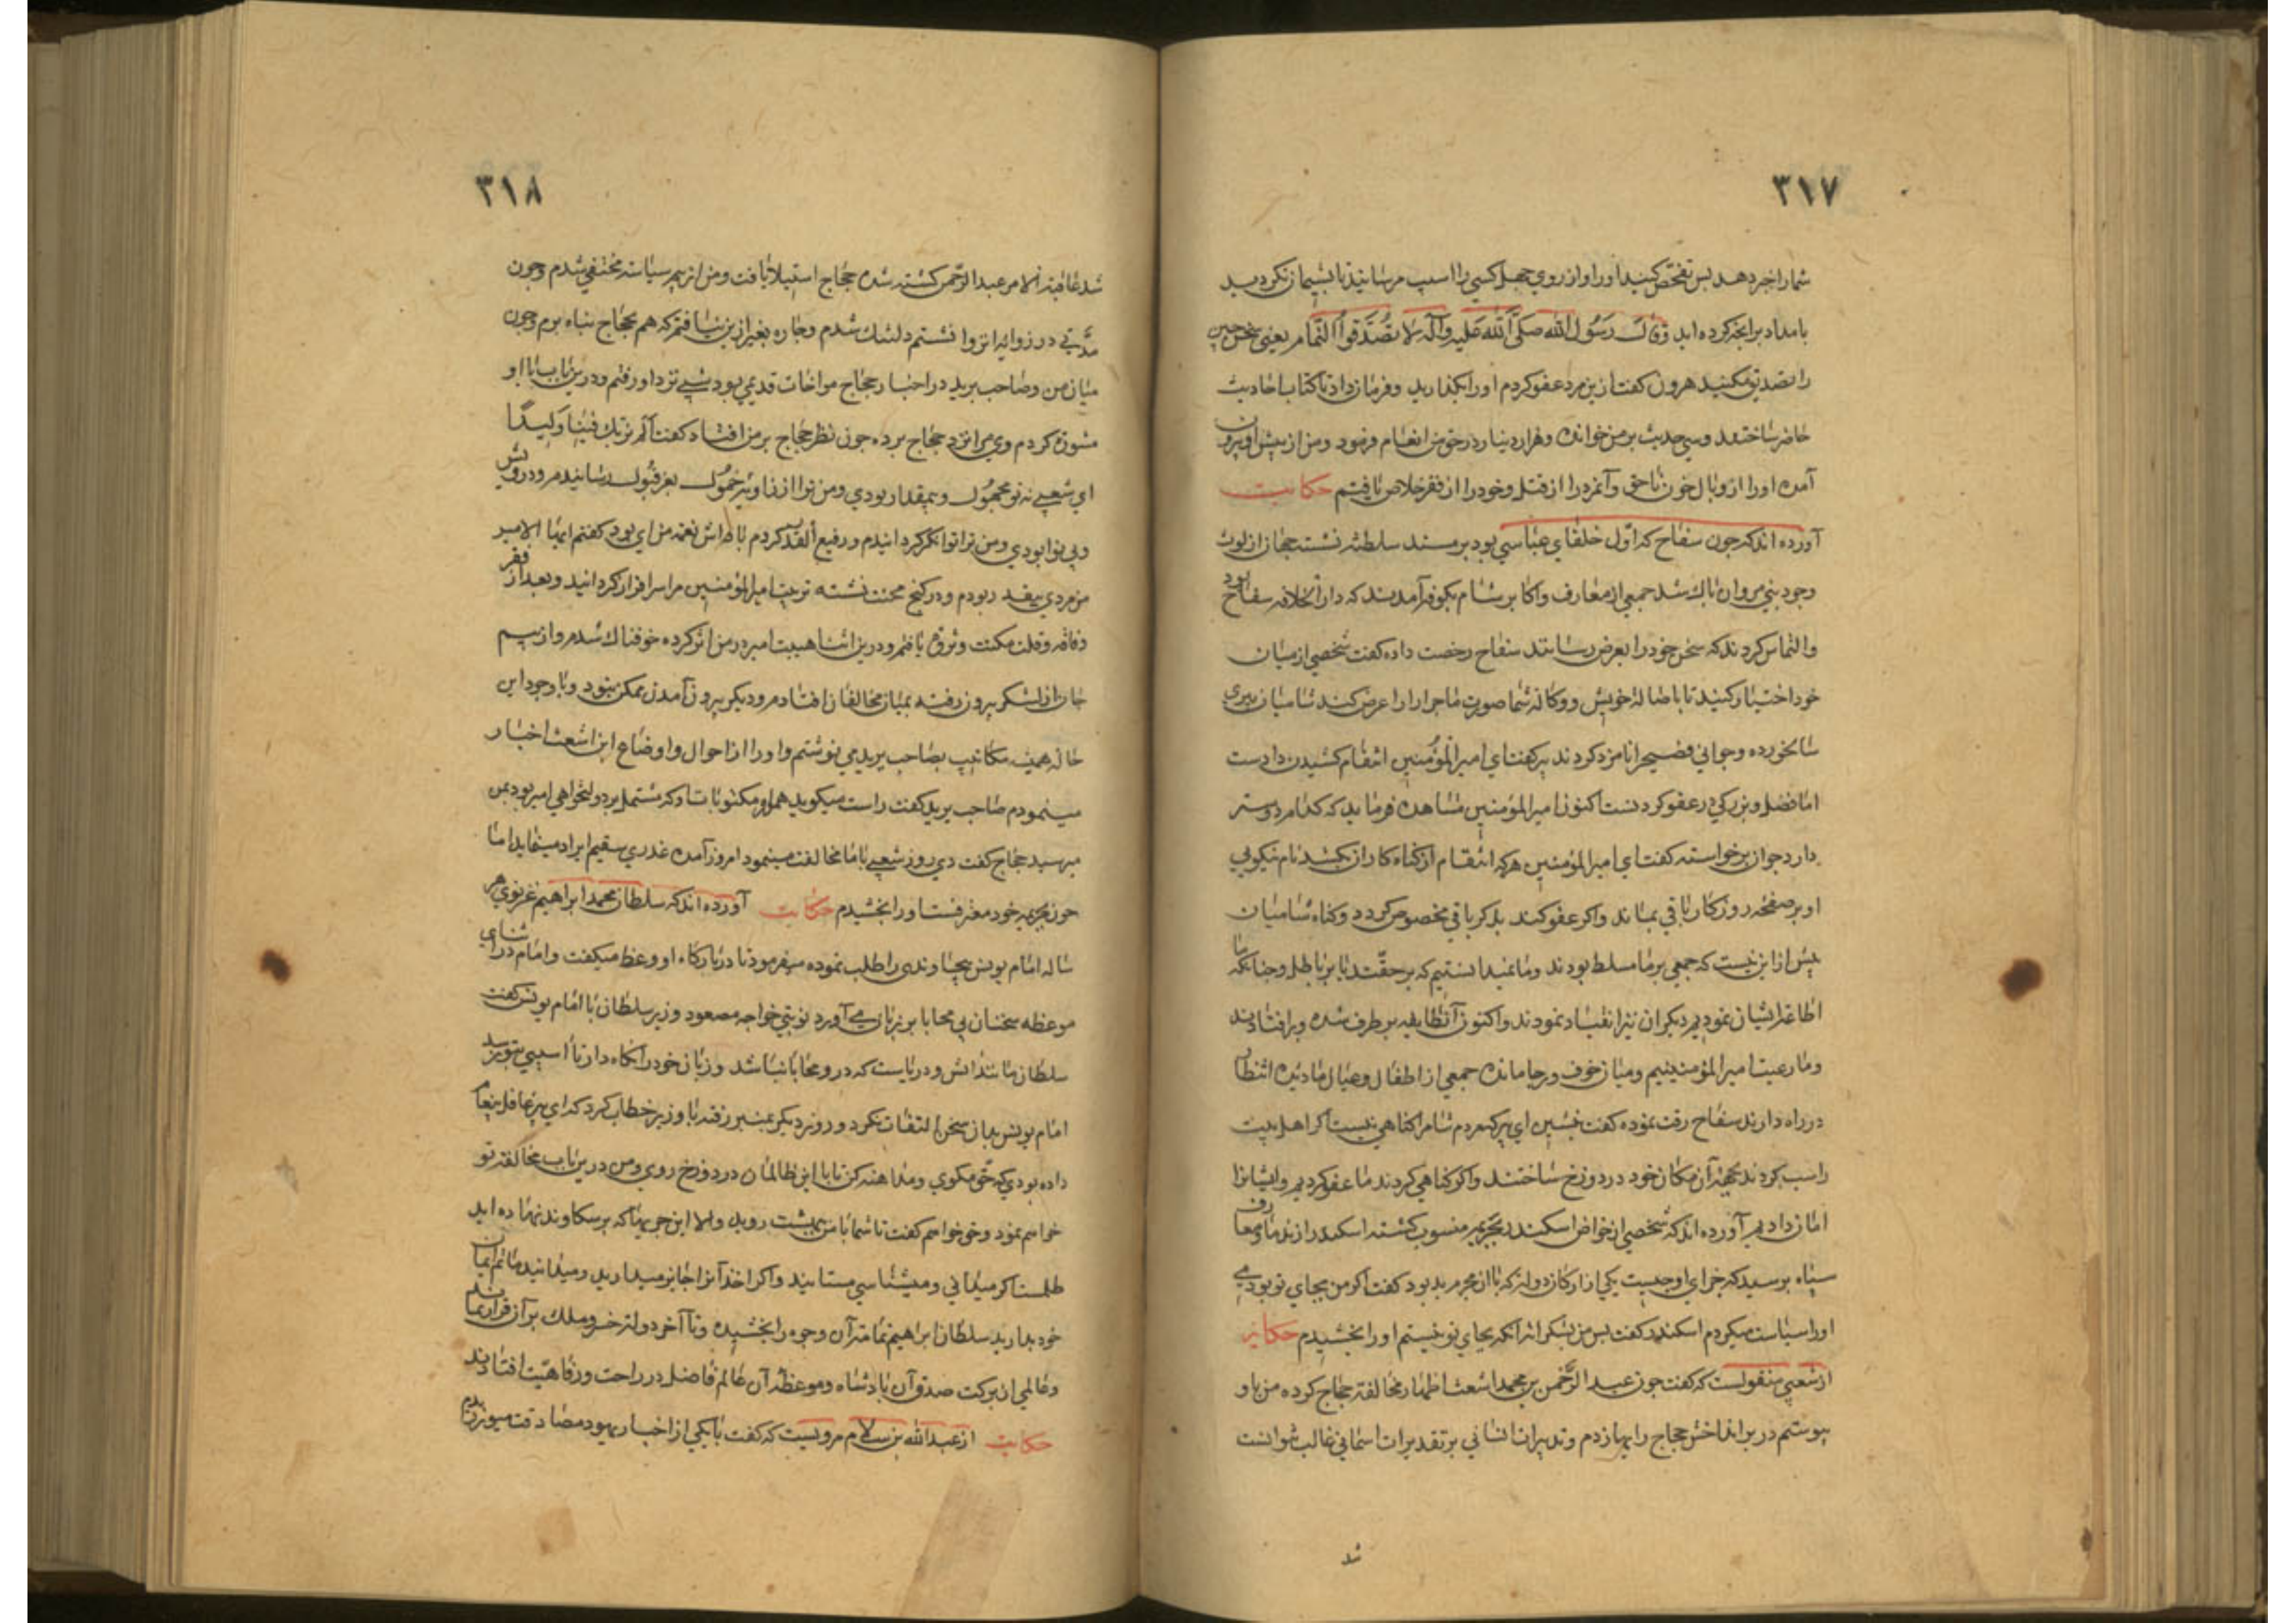 ۳۱۷
شما را خبر دهد بس تفحص کنید او را و از روی جهل کسی را اسیب مرسانید تا بشیمان نکردید
بامداد بر انجه کرده اید وقال رسول الله صلی الله علیه وآله لا تصدقوا النمام یعنی سخن چین
را تصدیق مکنید هرون کفت ازین مرد عفو کردم او را بکذارید و فرمان داد تا کتاب احادیث
حاضر ساختند و سی حدیث بر من خوانده و هزار دینار در حق من انعام فرمود و من از پیش او بیرون
آمده او را از وبال خون ناحق و آنمرد را از قتل و خود را از فقر خلاص یافتم حکایت
آورده اند که جون سفاح که اول خلفای عباسی بود بر مسند سلطنه نشسته جهان از لوث
وجود بنی مروان باک شد جمعی از معارف و اکابر شام بکوفه آمدند که دار الخلافه سفاح بود
والتماس کردند که سخن خود را بعرض رسانند سفاح رخصت داده کفت شخصی از میان
خود اختیار کنید تا باصاله خویش و وکاله شما صورت ماجرا را عرض کند شامیان پیری
سالخورده و جوانی فصیح را نامزد کردند پیر کفت ای امیر المؤمنین انتقام کشیدن دادست
اما فضل و بزرکی در عفو کردنست اکنون امیر المؤمنین مشاهده فرماید که کدام دوستر
دارد جوان برخواسته کفت ای امیر المؤمنین هر که انتقام از کناه کاران بکشد نام نیکویی
او بر صفحه روزکار باقی بماند واکر عفو کند بذکر باقی مخصوص کردد و کناه شامیان
بیش از این نیست که جمعی بر ما مسلط بودند و ما نمیدانستیم که بر حقند یا بر باطل و جنانکه ما
اطاعة ایشان نمودیم دیکران نیز انقیاد نمودند واکنون آنطایفه بر طرف شده و بر افتادند
و ما رعیت امیر المؤمنینیم و میان خوف و رجا مانده جمعی از اطفال و عیال ما دیده انتظار
در راه دارند سفاح رقت نموده کفت بنشین ای پیر که مردم شام را کناهی نیست اکر اهل بیت
را سب کردند بجهة آن مکان خود در دوزخ ساختند واکر کناهی کردند ما عفو کردیم و ایشانرا
امان دادیم آورده اند که شخصی از خواص اسکندر بجریمه منسوب کشته اسکندر از ندما و معارف
سپاه برسید که جزای او جیست یکی از ارکان دولة که با ان مجرم بد بود کفت اکر من بجای تو بودمی
او را سیاست میکردم اسکندر کفت بس من بشکرانه آنکه بجای تو نیستم او را بخشیدم حکایة
از شعبی منقولست که کفت جون عبد الرحمن بن محمد اشعث اظهار مخالفة حجاج کرده من باو
پیوستم در بر انداختن حجاج رایها زدم و تدبیرات انسانی بر تقدیرات اسمانی غالب نتوانست
شد
۳۱۸
شد عاقبة الامر عبد الرحمن کشته شده حجاج استیلا یافت و من از بیم سیاسة مختفی شدم و جون
مدتی در زوایه انزوا نشستم دلتنک شدم و جاره بغیر ازین نیافتم که هم بحجاج پناه برم و جون
میان من و صاحب برید در اخبار حجاج مواخات قدیمی بود شبی نزد او رفتم و درین باب با او
مشورة کردم وی مرا نزد حجاج برده جون نظر حجاج بر من افتاد کفت الم نربک فینا ولیدا
ای شعبی نه تو مجهول و بیمقدار بودی و من ترا از زاویه خمول بعز قبول رسانیدم و درویش
و بی نوا بودی و من ترا توانکر کردانیدم و رفیع القدر کردم باداش نعمه من ای بود کفتم ایها الامیر
من مردی بیقدر بودم و در کنج محنت نشسته تربیت امیر المؤمنین مرا سرافراز کردانید و بعد از فقر
و فاقه و قلت مکنت و ثروة یافتم و درین اثنا هیبت امیر در من اثر کرده خوفناک شدم و از بیم
جان از لشکر بیرون رفته بمیان مخالفان افتادم و دیکر بیرون آمدن ممکن نبود و با وجود این
حاله همیشه مکاتیب بصاحب برید می نوشتم و او را از احوال و اوضاع ابن اشعث اخبار
مینمودم صاحب برید کفت راست میکوید همواره مکتوبات او که مشتمل بر دولتخواهی امیر بود بمن
میرسید حجاج کفت دی روز شعبی با ما مخالفت مینمود امروز آمده عذری سقیم ایراد مینماید اما
جون بجریمه خود معترفست او را بخشیدم حکایت آورده اند که سلطان محمد ابراهیم غزنوی هر
ساله امام یونس سجاوندی را طلب نموده میفرمود تا در بارکاه او وعظ میکفت و امام در اثنای
موعظه سخنان بی محابا بر زبان می آورد نوبتی خواجه مسعود وزیر سلطان با امام یونس کفت
سلطان مانند اتش و دریاست که درو محابا نباشد و زبان خود را نکاه دار تا اسیبی بتو نرسد
امام یونس بدان سخن التفات نکرد و روز دیکر بمنبر رفته با وزیر خطاب کرد که ای پیر غافل پیغام
داده بودی که حق مکوی و مداهنه کن تا با این ظالمان در دوزخ روی و من درین باب مخالفة تو
خواهم نمود و حق خواهم کفت تا شما با من ببهشت روید و الا این جریبها که بر سکاوند نهاده اید
ظلمست اکر میدانی و میشناسی مستانید واکر اخذ آنرا جایز میدارید و میدانید ماتم ایمان
خود بدارید سلطان ابراهیم تمامة آن وجوه را بخشیده و تا آخر دولة خسرو ملک بر آن قرار بماند
و عالمی از برکت صدق آن بادشاه و موعظه آن عالم فاضل در راحت و رفاهیت افتادند
حکایت از عبدالله بن سلام مرویست که کفت با یکی از احبار یهود مصادقت میورزیدم